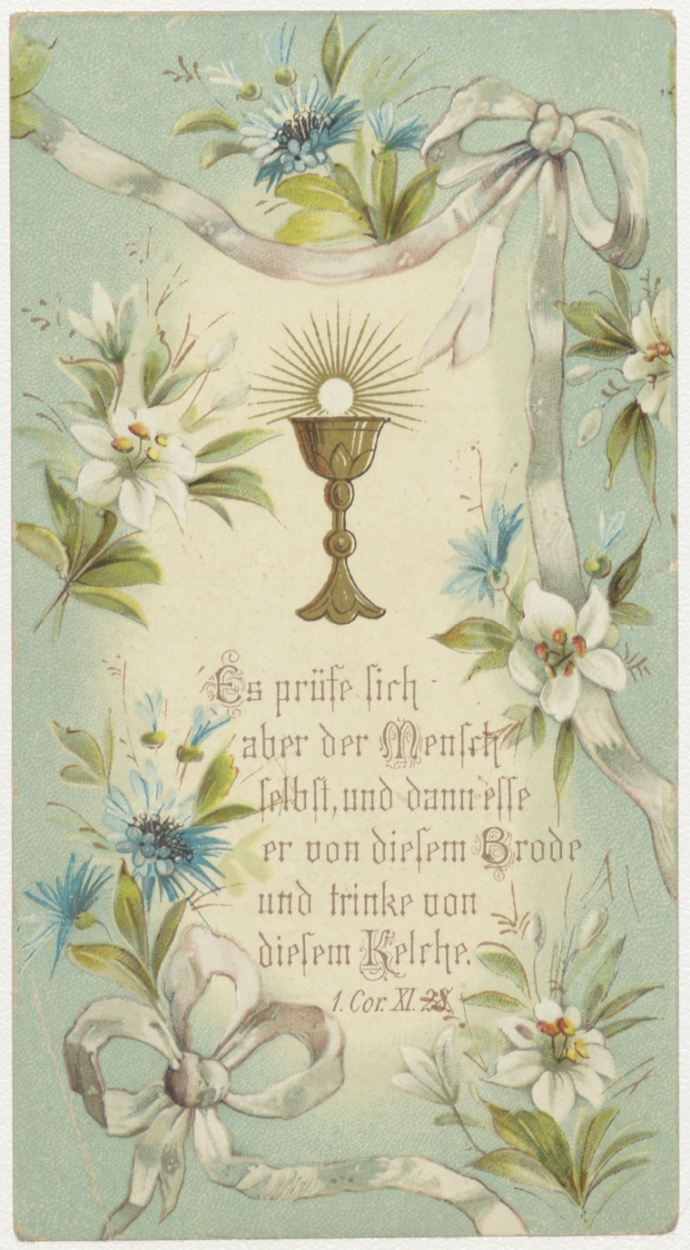 Es prüfe sich
aber der Mensch
selbst, und dann esse
er von diesem Brode
und trinke von
diesem Kelche.
1. Cor. XI. 28.